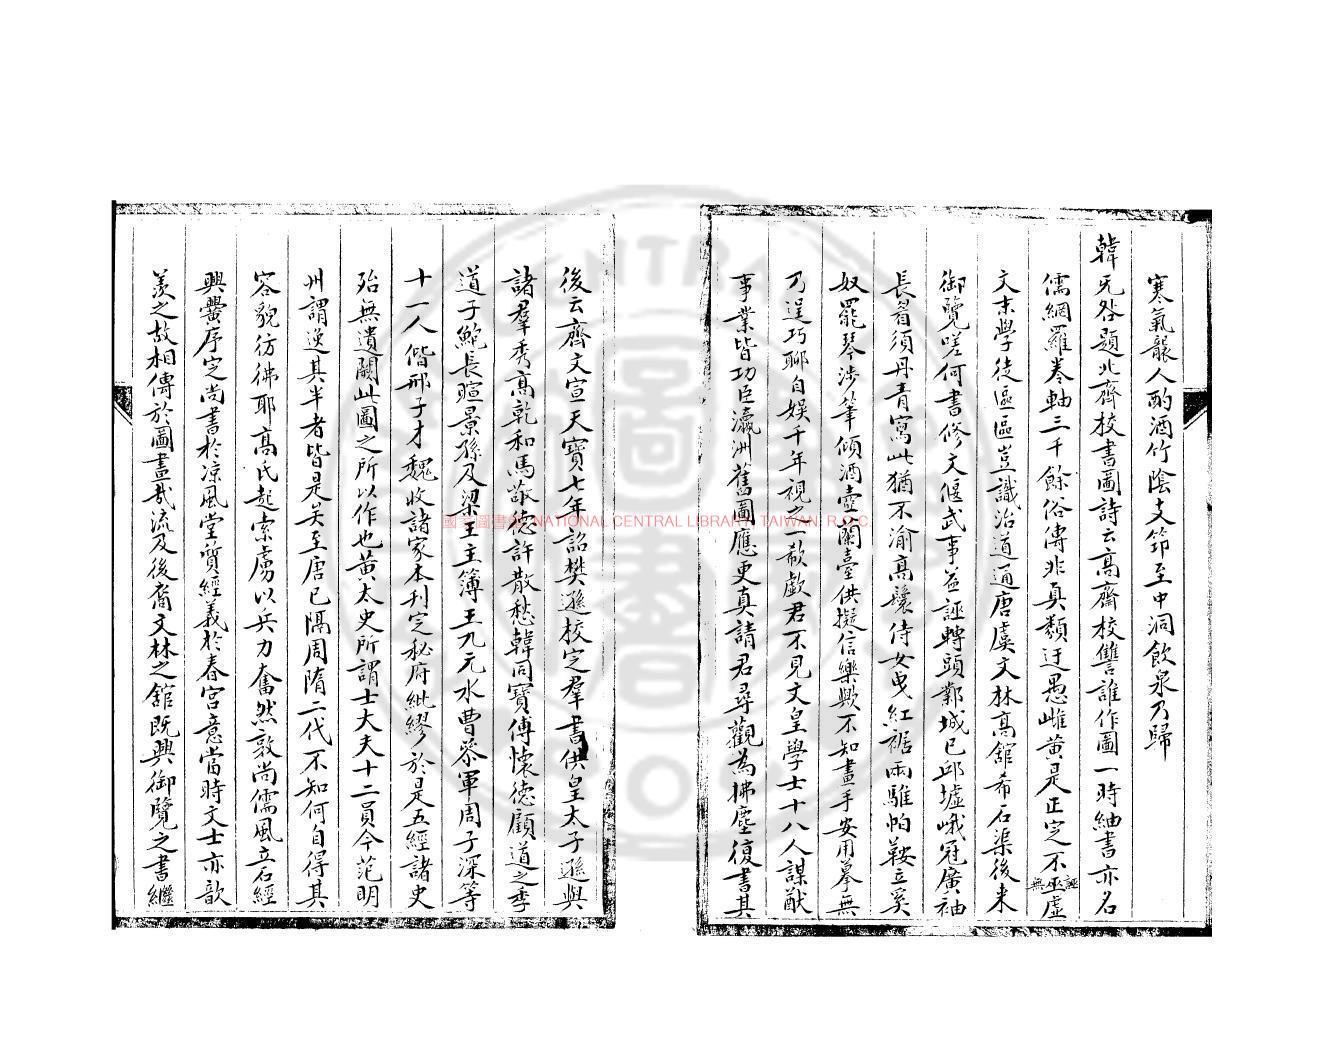 寒氣襲人酌酒竹陰支笻至中洞飲泉乃歸
韓无咎題北齊校書圖詩云高齋校讐誰作圖一時紬書亦名
儒網羅卷軸三千餘俗傳非真類迂愚雌黃是正定不誣虛
文末學徒區區豈識治道通唐虞文林高舘希石渠後來
御覽嗟何書修文偃武事益誣轉頭鄴城已邱墟峨冠廣袖
長眉須丹青寫此猶不渝高鬟侍女曳紅裾兩騅帕鞍立奚
奴罷琴涉筆傾酒壺蘭臺供擬信樂歟不知畫手安用摹無
乃逞巧聊自娛千年視之一欷歔君不見文皇學士十八人謀猷
事業皆功臣瀛洲舊圖應更真請君尋觀為拂塵復書其
後云齊文宣天寶七年詔樊遜校定羣書供皇太子遜與
諸羣秀高乾和馬敬德許散愁韓同寶傅懷德顧道之季
道子鮑長暄景孫及梁主主簿王九元水曹叅軍周子深等
十一人偕邢子才魏收諸家本刊定秘府紕繆於是五經諸史
殆無遺闕此圖之所以作也黃太史所謂士大夫十二員今范明
州謂逸其半者皆是矣至唐已隔周隋二代不知何自得其
容貌彷彿耶高氏起索虜以兵力奮然敦尚儒風立石經
興黌序定尚書於凉風堂質經義於春宮意當時文士亦歆
羨之故相傳於圖畫哉流及後裔文林之舘既興御覽之書繼
國家圖書館 NATIONAL CENTRAL LIBRARY, TAIWAN, R.O.C.